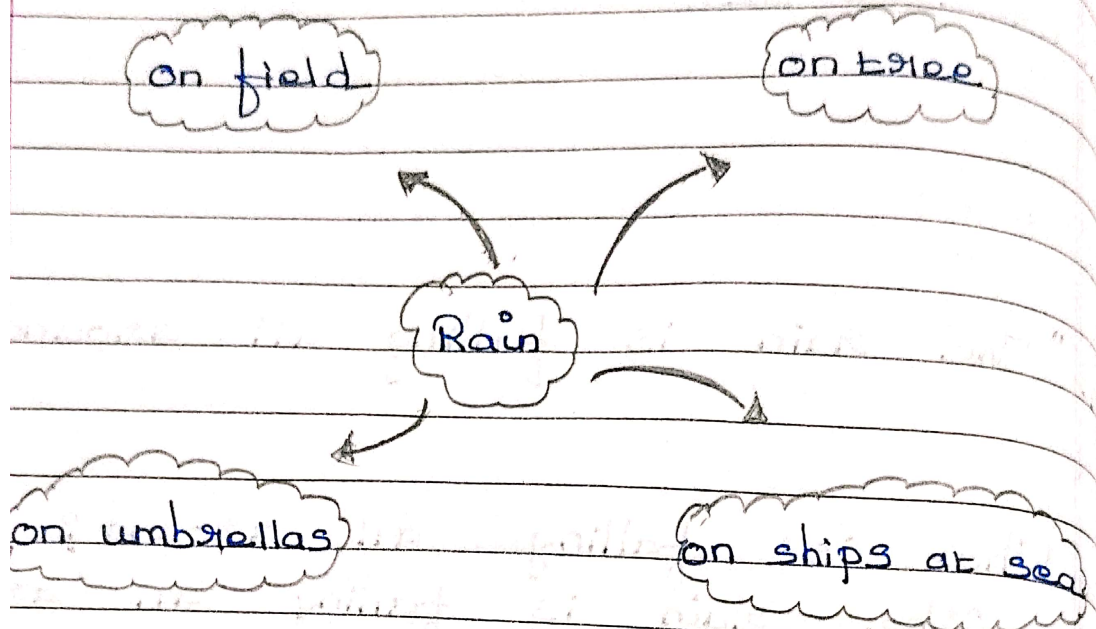 on field
on tree
Rain
on umbrellas
on ships at sea